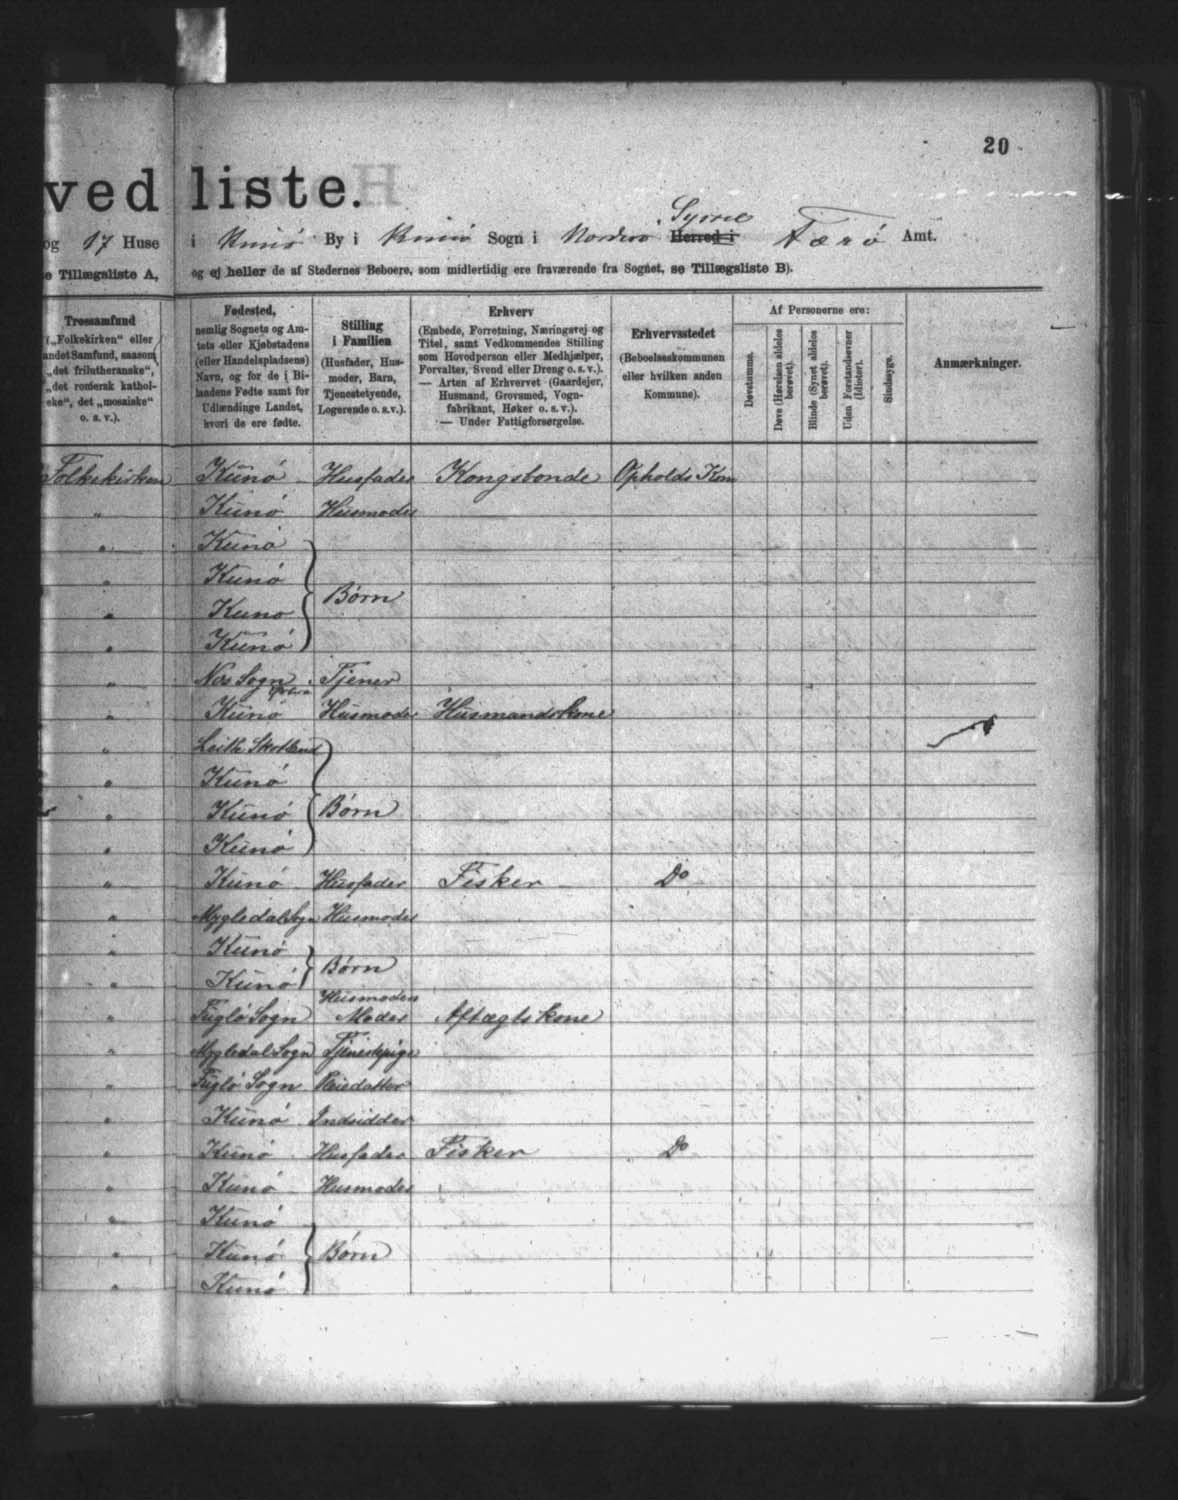 20
ved liste.
og 17 Huse i Kunö By i Kunö Sogn i Norderø Syssel Herred i Færö Amt.
e Tillægsliste A, og ej heller de af Stedernes Beboere, som midlertidig ere fraværende fra Sognet, se Tillægsliste B).
Trossamfund
(„Folkekirken“ eller
andet Samfund, saasom
„det frilutheranske“,
„det romersk kathol-
ske“, det „mosaiske“
o. s. v.).
Fødested,
nemlig Sognets og Am-
tets eller Kjøbstadens
(eller Handelspladsens)
Navn, og for de i Bi-
landene Fødte samt for
Udlændinge Landet,
hvori de ere fødte.
Stilling
i Familien
(Husfader, Hus-
moder, Barn,
Tjenestetyende,
Logerende o. s. v.).
Erhverv
(Embede, Forretning, Næringsvej og
Titel, samt Vedkommendes Stilling
som Hovedperson eller Medhjælper,
Forvalter, Svend eller Dreng o. s. v.).
— Arten af Erhvervet (Gaardejer,
Husmand, Grovsmed, Vogn-
fabrikant, Høker o. s. v.).
— Under Fattigforsørgelse.
Erhvervsstedet
(Beboelseskommunen
eller hvilken anden
Kommune).
Af Personerne ere:
Døvstumme.
Døve (Hørelsen aldeles
berøvet).
Blinde (Synet aldeles
berøvet).
Uden Forstandsevner
(Idioter).
Sindssyge.
Anmærkninger.
Folkekirken Kunö Husfader Kongsbonde Opholds Kom
" Kunö Husmoder
" Kunö
" Kunö
" Kunö Börn
" Kunö
" Nes Sogn Tjener
" Kunö Husmoder Husmandskone
" Leith Skotland
" Kunö
" Kunö Börn
" Kunö
" Kunö Husfader Fisker Do
" Mygledal Sogn Husmoder
" Kunö
" Kunö Börn
" Fuglö Sogn Husmoders Moder Aftægtskone
" Mygledal Sogn Tjenestepige
" Fuglö Sogn Pleiedatter
" Kunö Indsidder
" Kunö Husfader Fisker Do
" Kunö Husmoder
" Kunö
" Kunö Börn
" Kunö